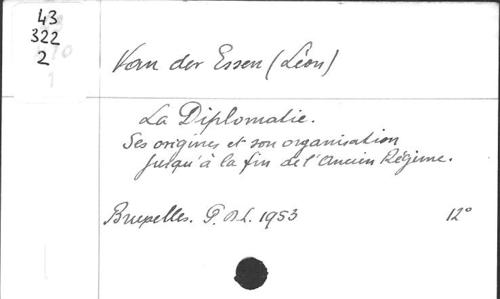 43
322
2
Van der Essen (Léon)
La Diplomatie.
Ses origines et son organisation
jusqu'à la fin de l'Ancien Régime.
Bruxelles. P.D.L. 1953 12°